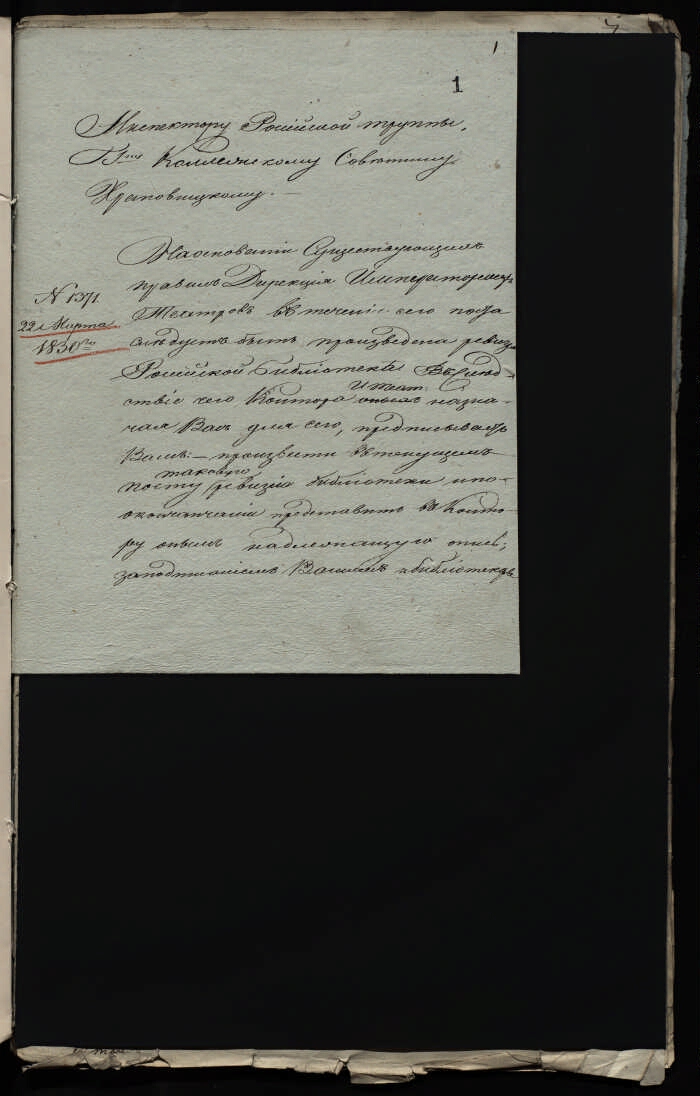 1
1
Инспектору Россійской труппы,
Г<sup>ну</sup> Коллежскому Совѣтнику
Храповицкому.
На основаніи Существующихъ
правилъ Дирекціи Императорскихъ
N 1371
Театровъ въ теченіи сего поста
22 Марта
слѣдуетъ быть произведена ревизія
1830<sup>го</sup>
Россійской библіотеки. Въ слѣд-
И. Теат.
ствіе чего Контора назна-
чая Васъ для сего, предписываетъ
Вамъ: – произвести въ текущемъ
таковую
посту ревизію библіотеки и по
окончаніи представить въ Конто-
ру онымъ надлежащую опись,
за подписаніемъ Вашимъ и библіотекаря